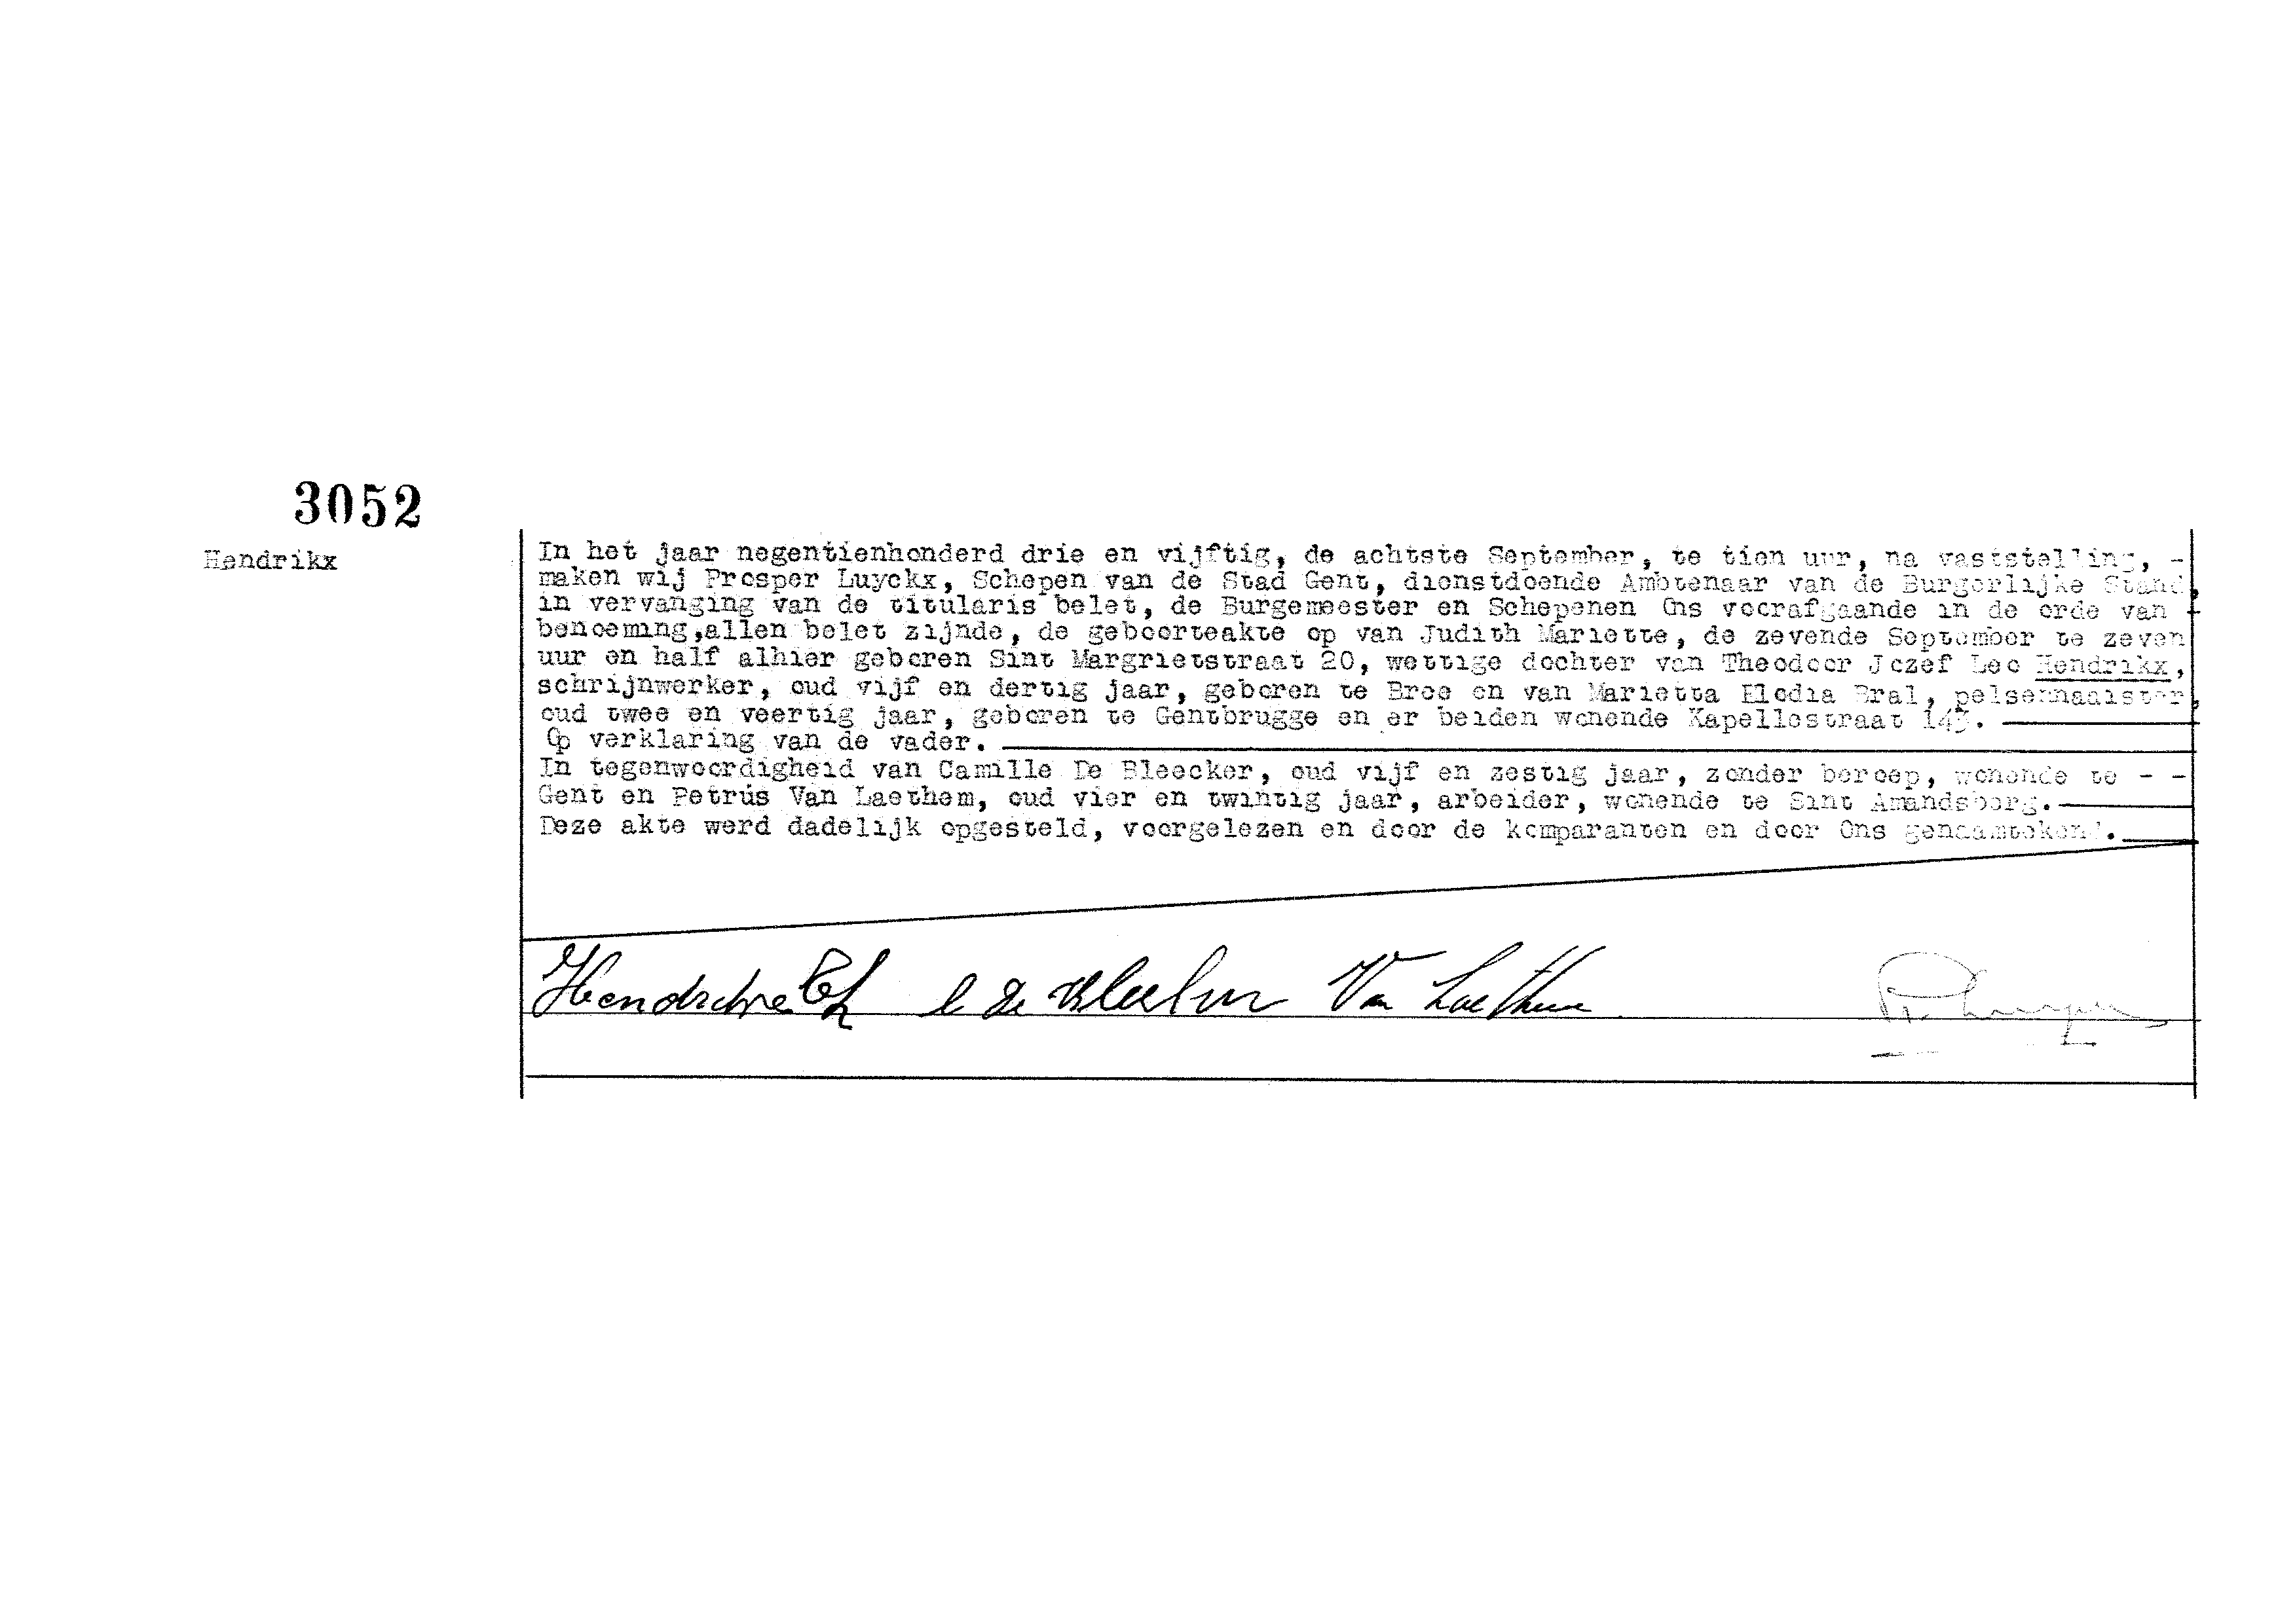 3052
Hendrikx
In het jaar negentienhonderd drie en vijftig, de achtste September, te tien uur, na vaststelling, -
maken wij Prosper Luyckx, Schepen van de Stad Gent, dienstdoende Ambtenaar van de Burgerlijke Stand,
in vervanging van de titularis belet, de Burgemeester en Schepenen Ons voorafgaande in de orde van -
benoeming,allen belet zijnde, de geboorteakte op van Judith Mariette, de zevende September te zeven
uur en half alhier geboren Sint Margrietstraat 20, wettige dochter van Theodoor Jozef Leo Hendrikx,
schrijnwerker, oud vijf en dertig jaar, geboren te Bree en van Marietta Elodia Bral, pelsenmaaister,
oud twee en veertig jaar, geboren te Gentbrugge en er beiden wonende Kapellestraat 143.
Op verklaring van de vader.
In tegenwoordigheid van Camille De Bleecker, oud vijf en zestig jaar, zonder beroep, wonende te - -
Gent en Petrus Van Laethem, oud vier en twintig jaar, arbeider, wonende te Sint Amandsberg.
Deze akte werd dadelijk opgesteld, voorgelezen en door de komparanten en door Ons genaamtekend.
De Van Laethem